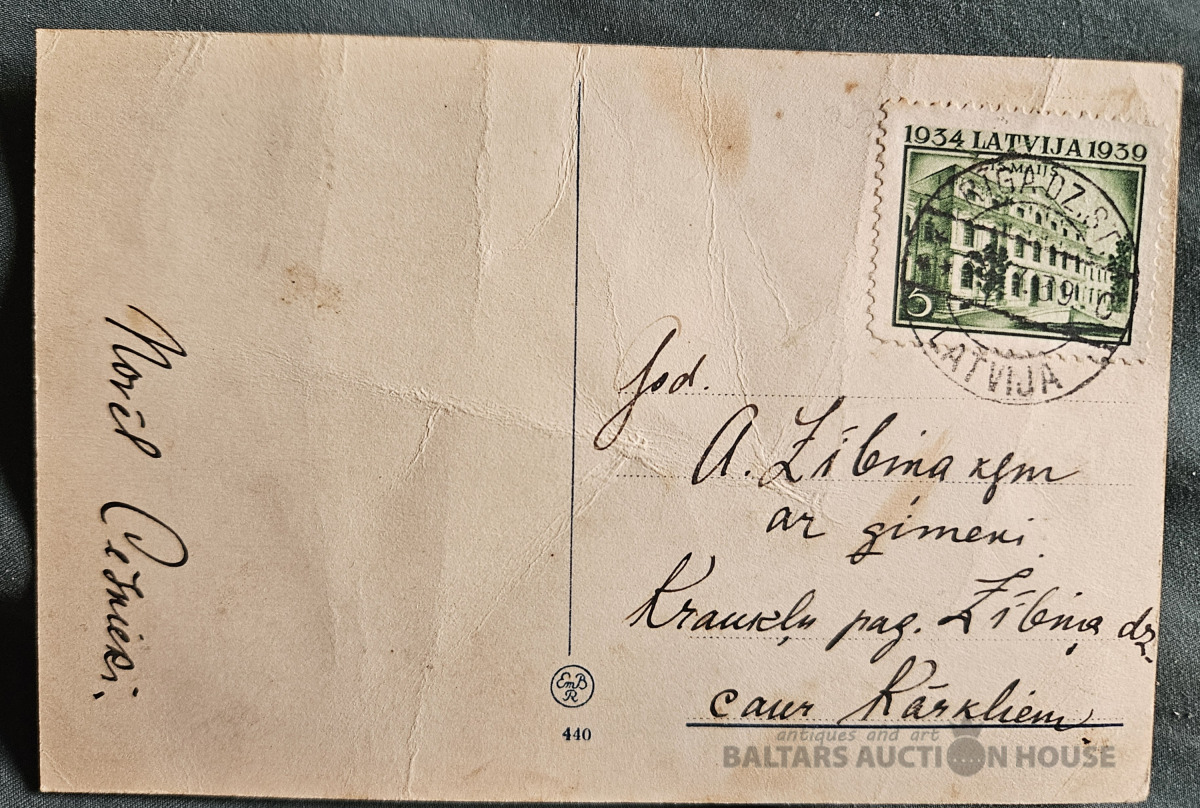 Novēl
1934 LATVIJA 1939
15 MAIJS
5
RĪGA DZ. ST.
LATVIJA
God.
A. Zībiņa kgm
ar ģimeni.
Kraukļu pag. Zībiņa dz.
caur Kārkliem.
EmB
R
440
antiques and art
BALTARS AUCTION HOUSE